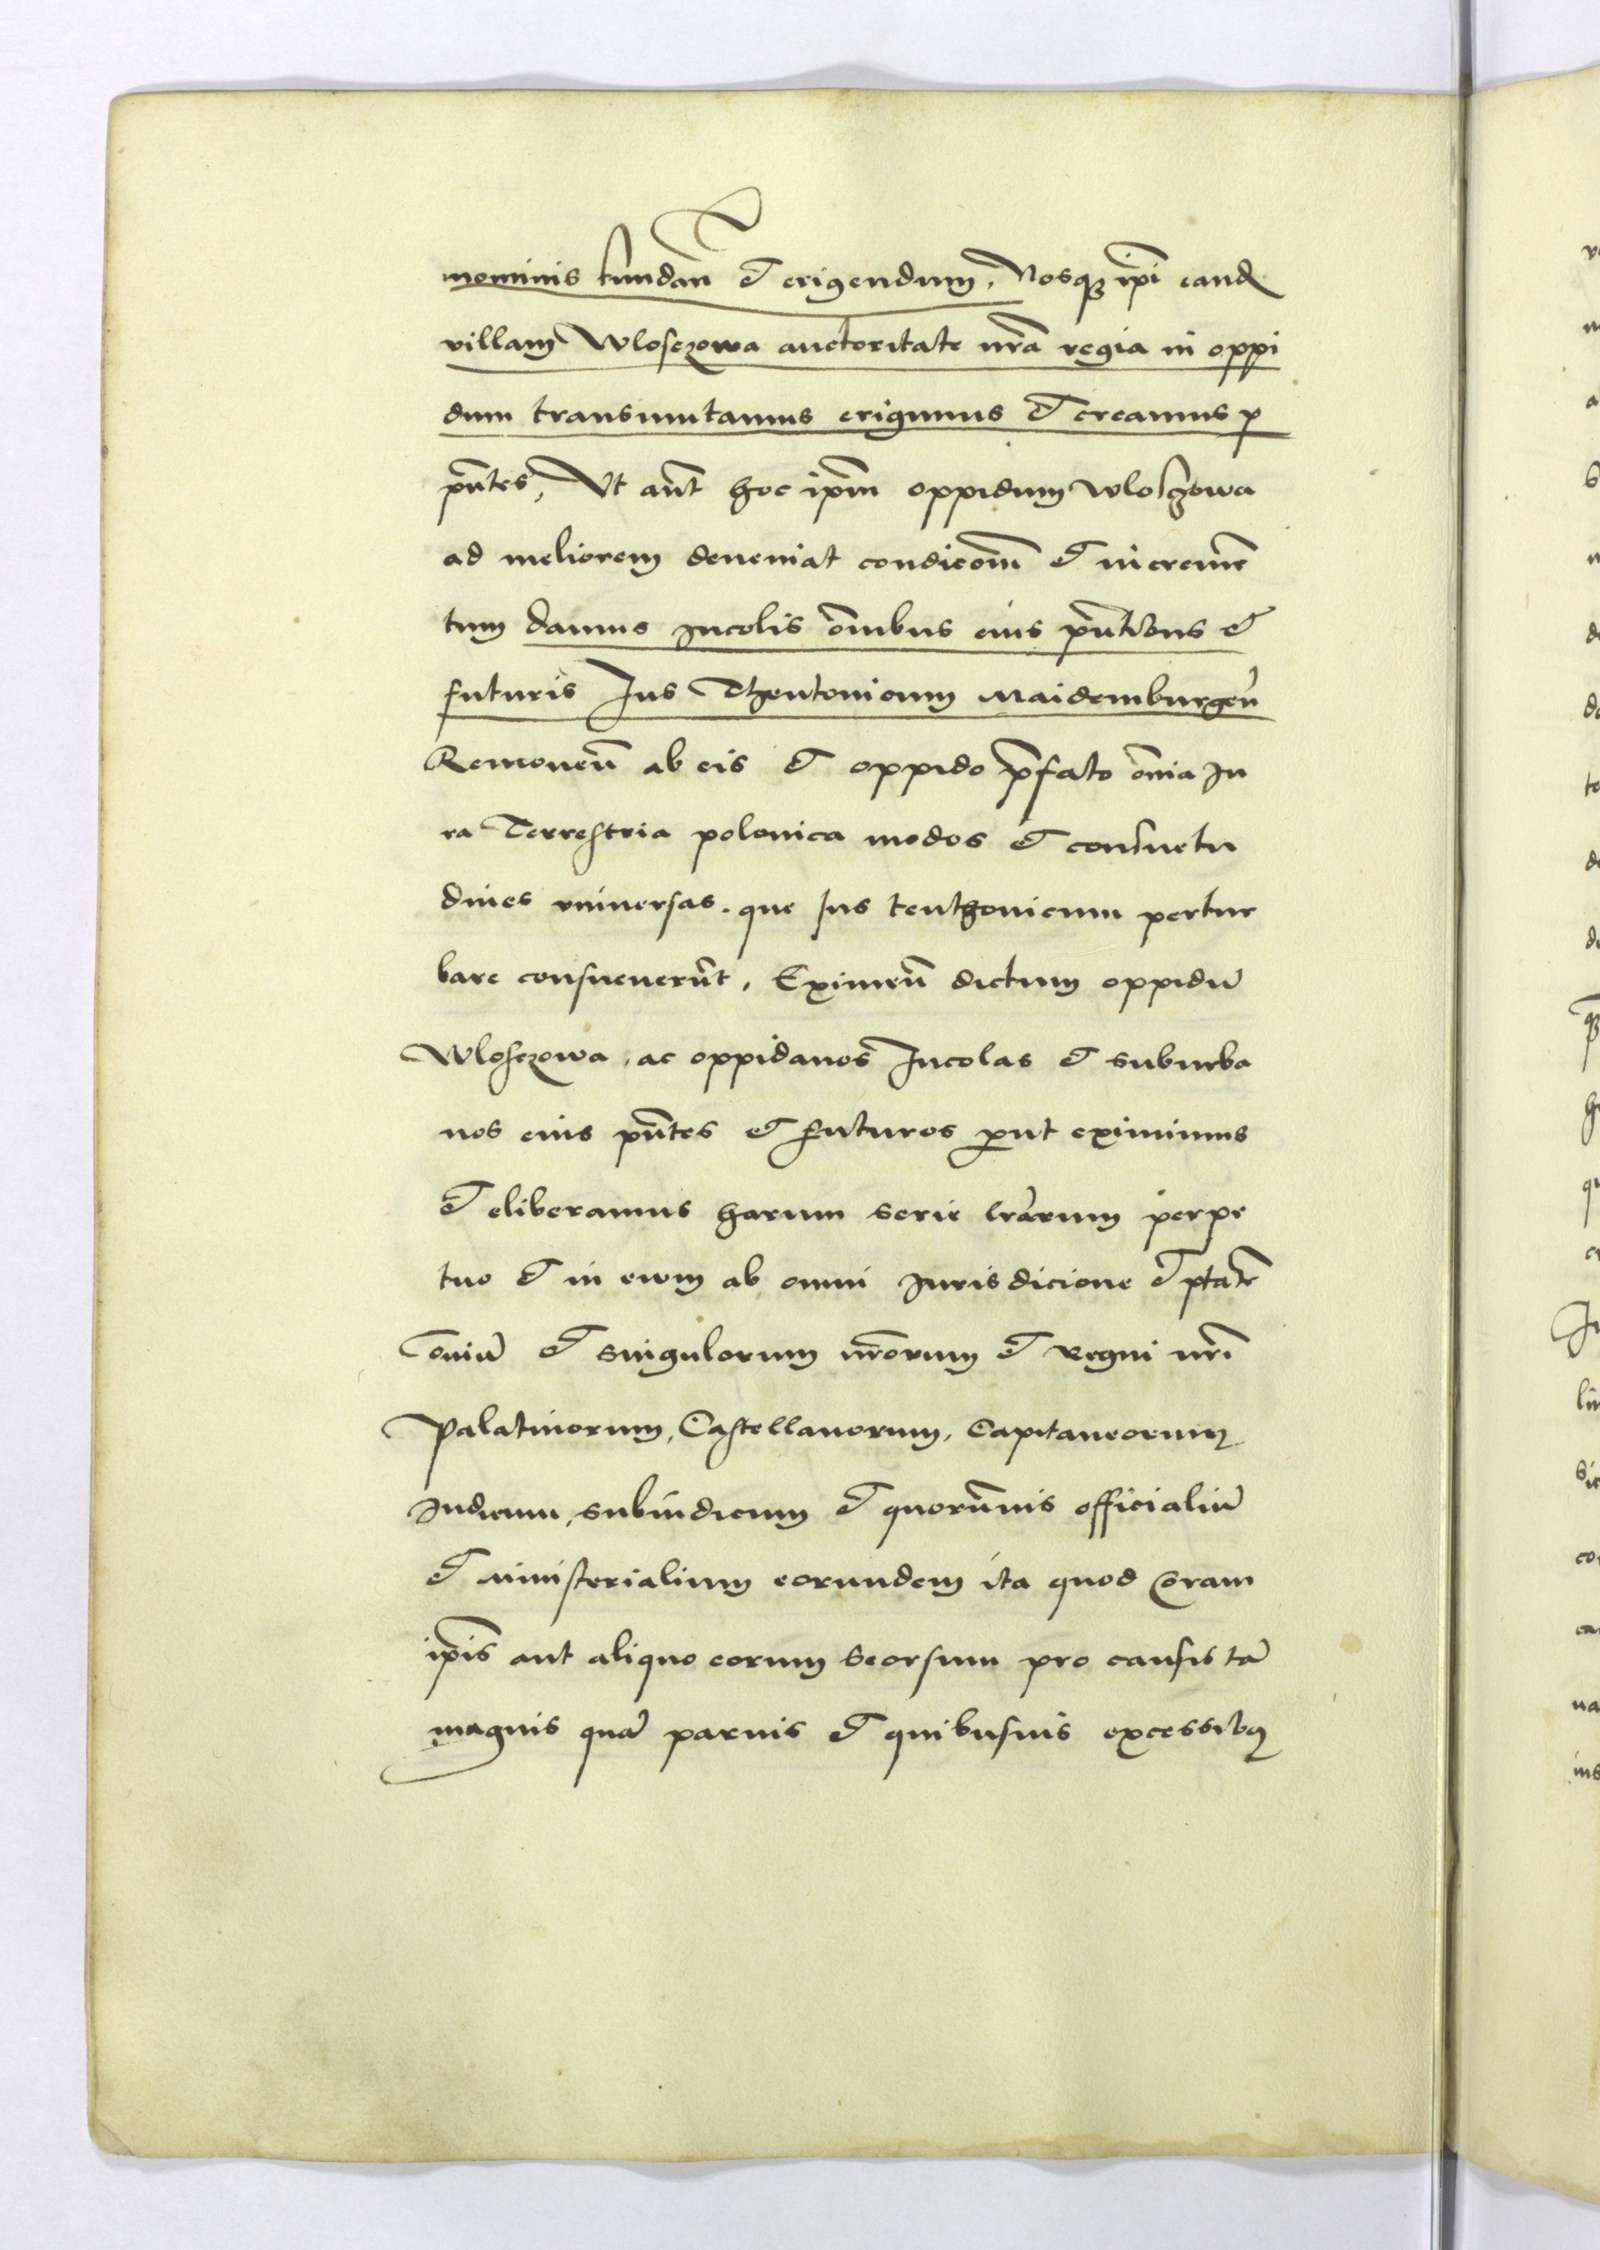 nominis fundan̄ et erigendum, Nosqꝫ ip̄i eand
villam Wlosczowa auctoritate nr̄a regia in oppi
dum transmutamus erigimus et creamus p
pn̄tes, Vt aūt hoc ip̄m oppidum Wloszczowa
ad meliorem deueniat condicōm̄ et incremē
tum damus Incolis om̄ibus eius pn̄tibus et
futuris Ius Theutonicum Maidemburgeñ
Remoueñ ab eis et oppido p̄fato om̄ia Iu
ra Terrestria polonica modos et consuetu
dines vniuersas. que Ius teuthonicum pertur
bare consueuerūt, Eximeñ dictum oppidū
Wlosczowa, ac oppidanos Incolas et suburba
nos eius pn̄tes et futuros put eximimus
et eliberamus harum serie lr̄arum perpe
tuo et in ewm ab omni Iurisdicione et ptāte
om̄iū et singulorum nr̄orum et Regni nr̄i
Palatinorum, Castellanorum, Capitaneorum
Iudicum, subiudicum et quorūuis officialiū
et ministerialium eorundem ita quod Coram
ip̄is aut aliquo eorum seorsum pro causis tā
magnis quā paruis et quibusuis excessibꝫ